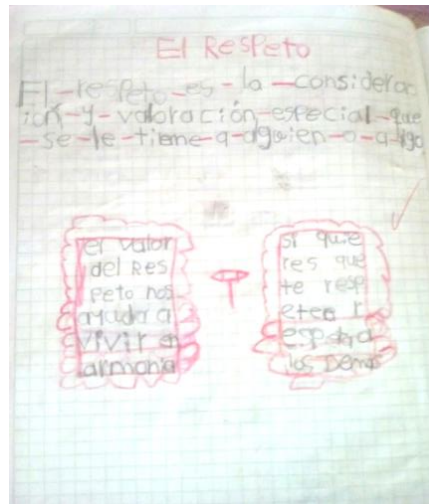 El Respeto
El-respeto-es-la-considerac
ion-y-valoración-especial-que
-se-le-tiene-a-alguien-o-a-algo
el valor
del Res
peto nos
ayuda a
vivir en
armonia
si quie
res que
te resp
eten r
espeta a
los Demas